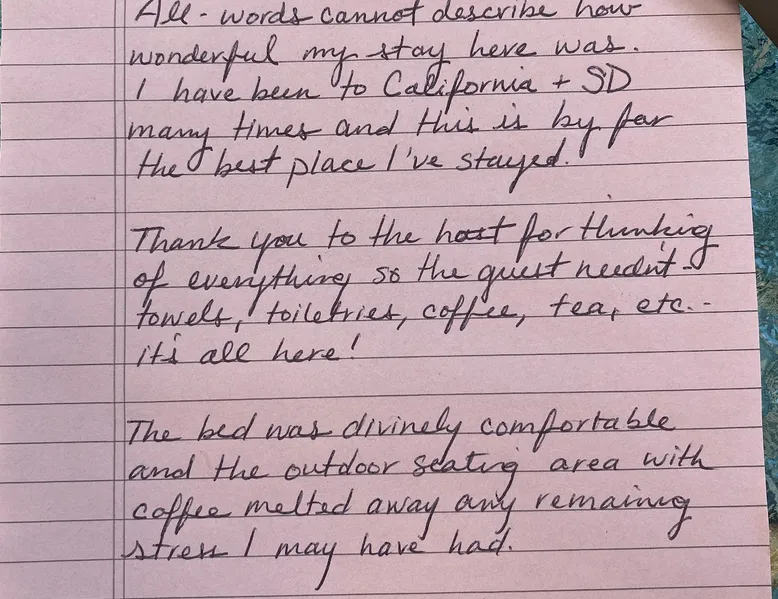 All - words cannot describe how
wonderful my stay here was.
I have been to California + SD
many times and this is by far
the best place I've stayed.
Thank you to the host for thinking
of everything so the guest needn't -
towels, toiletries, coffee, tea, etc. -
it's all here!
The bed was divinely comfortable
and the outdoor seating area with
coffee melted away any remaining
stress I may have had.